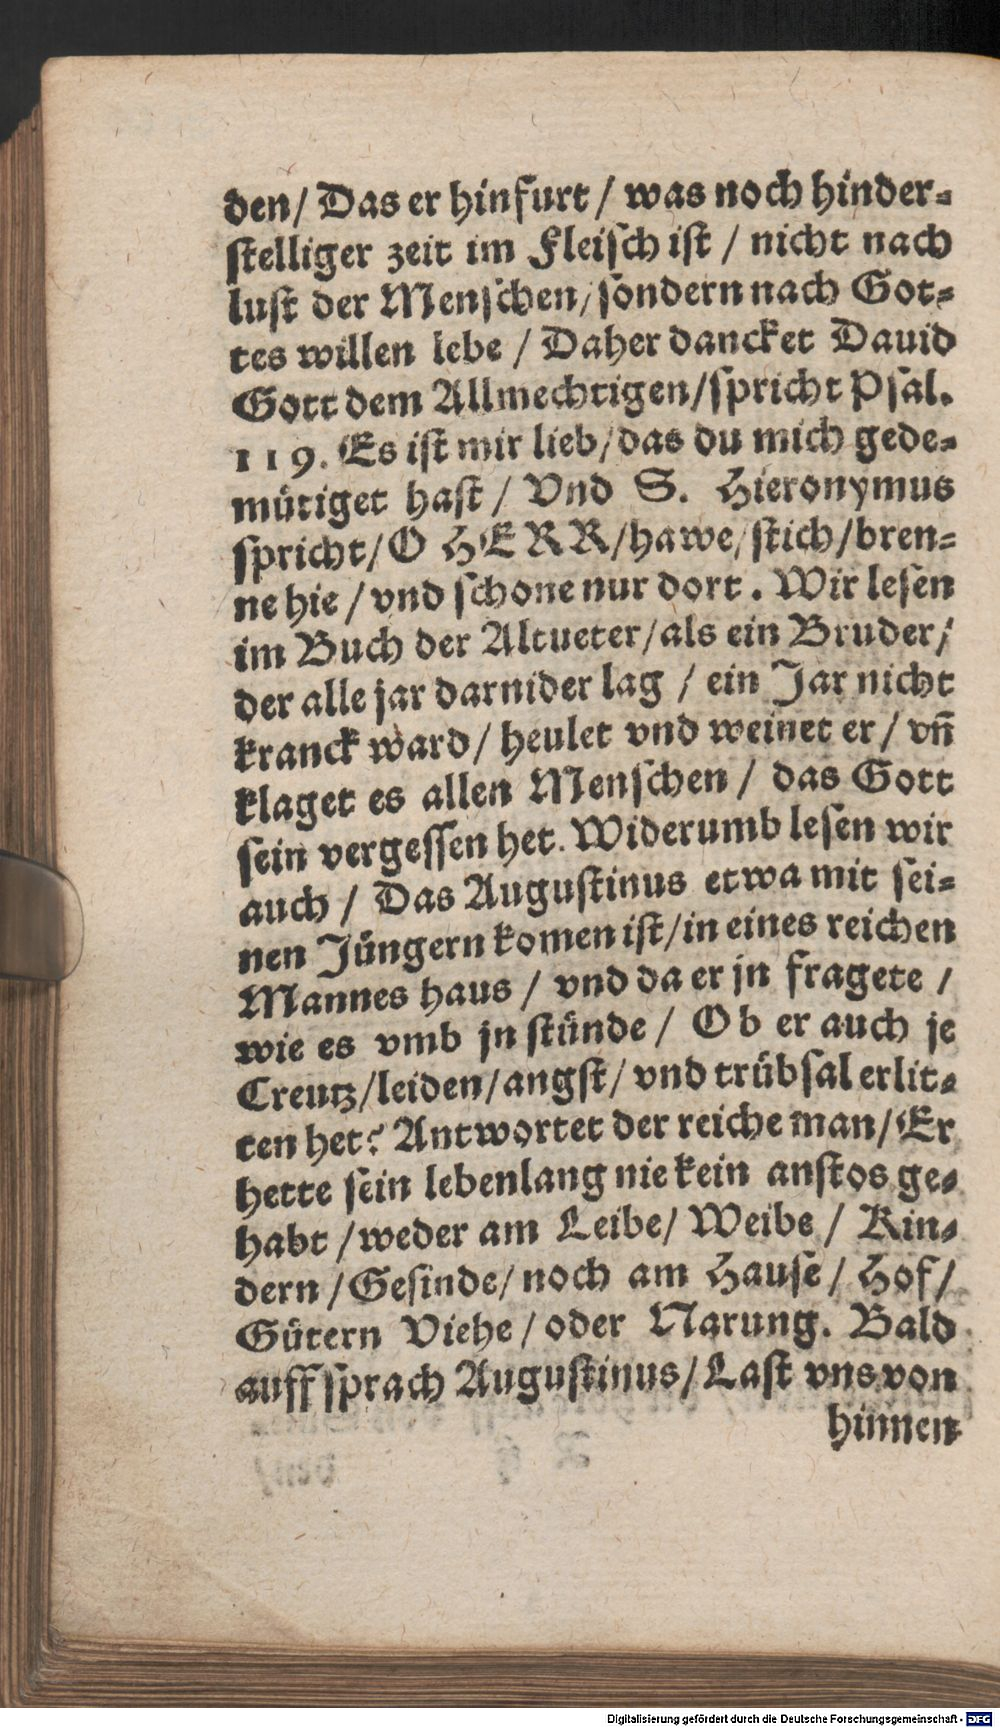 den/ Das er hinfurt / was noch hinder⸗
ſtelliger zeit im Fleiſch iſt / nicht nach
luſt der Menſchen/ ſondern nach Got⸗
tes willen lebe / Daher dancket Dauid
Gott dem Allmechtigen/ſpricht Pſal.
119. Es iſt mir lieb/das du mich gede⸗
mütiget haſt / Vnd S. Hieronymus
ſpricht/O HERR/hawe/ſtich/bren⸗
ne hie / vnd ſchone nur dort. Wir leſen
im Buch der Altueter/als ein Bruder/
der alle jar darnider lag / ein Jar nicht
kranck ward/ heulet vnd weinet er / vñ
klaget es allen Menſchen / das Gott
ſein vergeſſen het. Widerumb leſen wir
auch / Das Auguſtinus etwa mit ſei⸗
nen Jüngern komen iſt/in eines reichen
Mannes haus / vnd da er jn fragete /
wie es vmb jn ſtünde / Ob er auch je
Creutz/leiden/angſt/ vnd trübſal erlit⸗
ten het? Antwortet der reiche man/Er
hette ſein lebenlang nie kein anſtos ge⸗
habt /weder am Leibe/ Weibe / Kin⸗
dern /Geſinde/ noch am Hauſe / Hof/
Gütern Viehe / oder Narung. Bald
auff ſprach Auguſtinus/Laſt vns von
hinnen
Digitalisierung gefördert durch die Deutsche Forschungsgemeinschaft - DFG